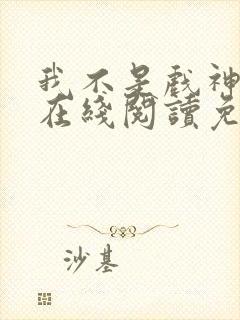 我不是戲神
在綫閱讀免
沙基